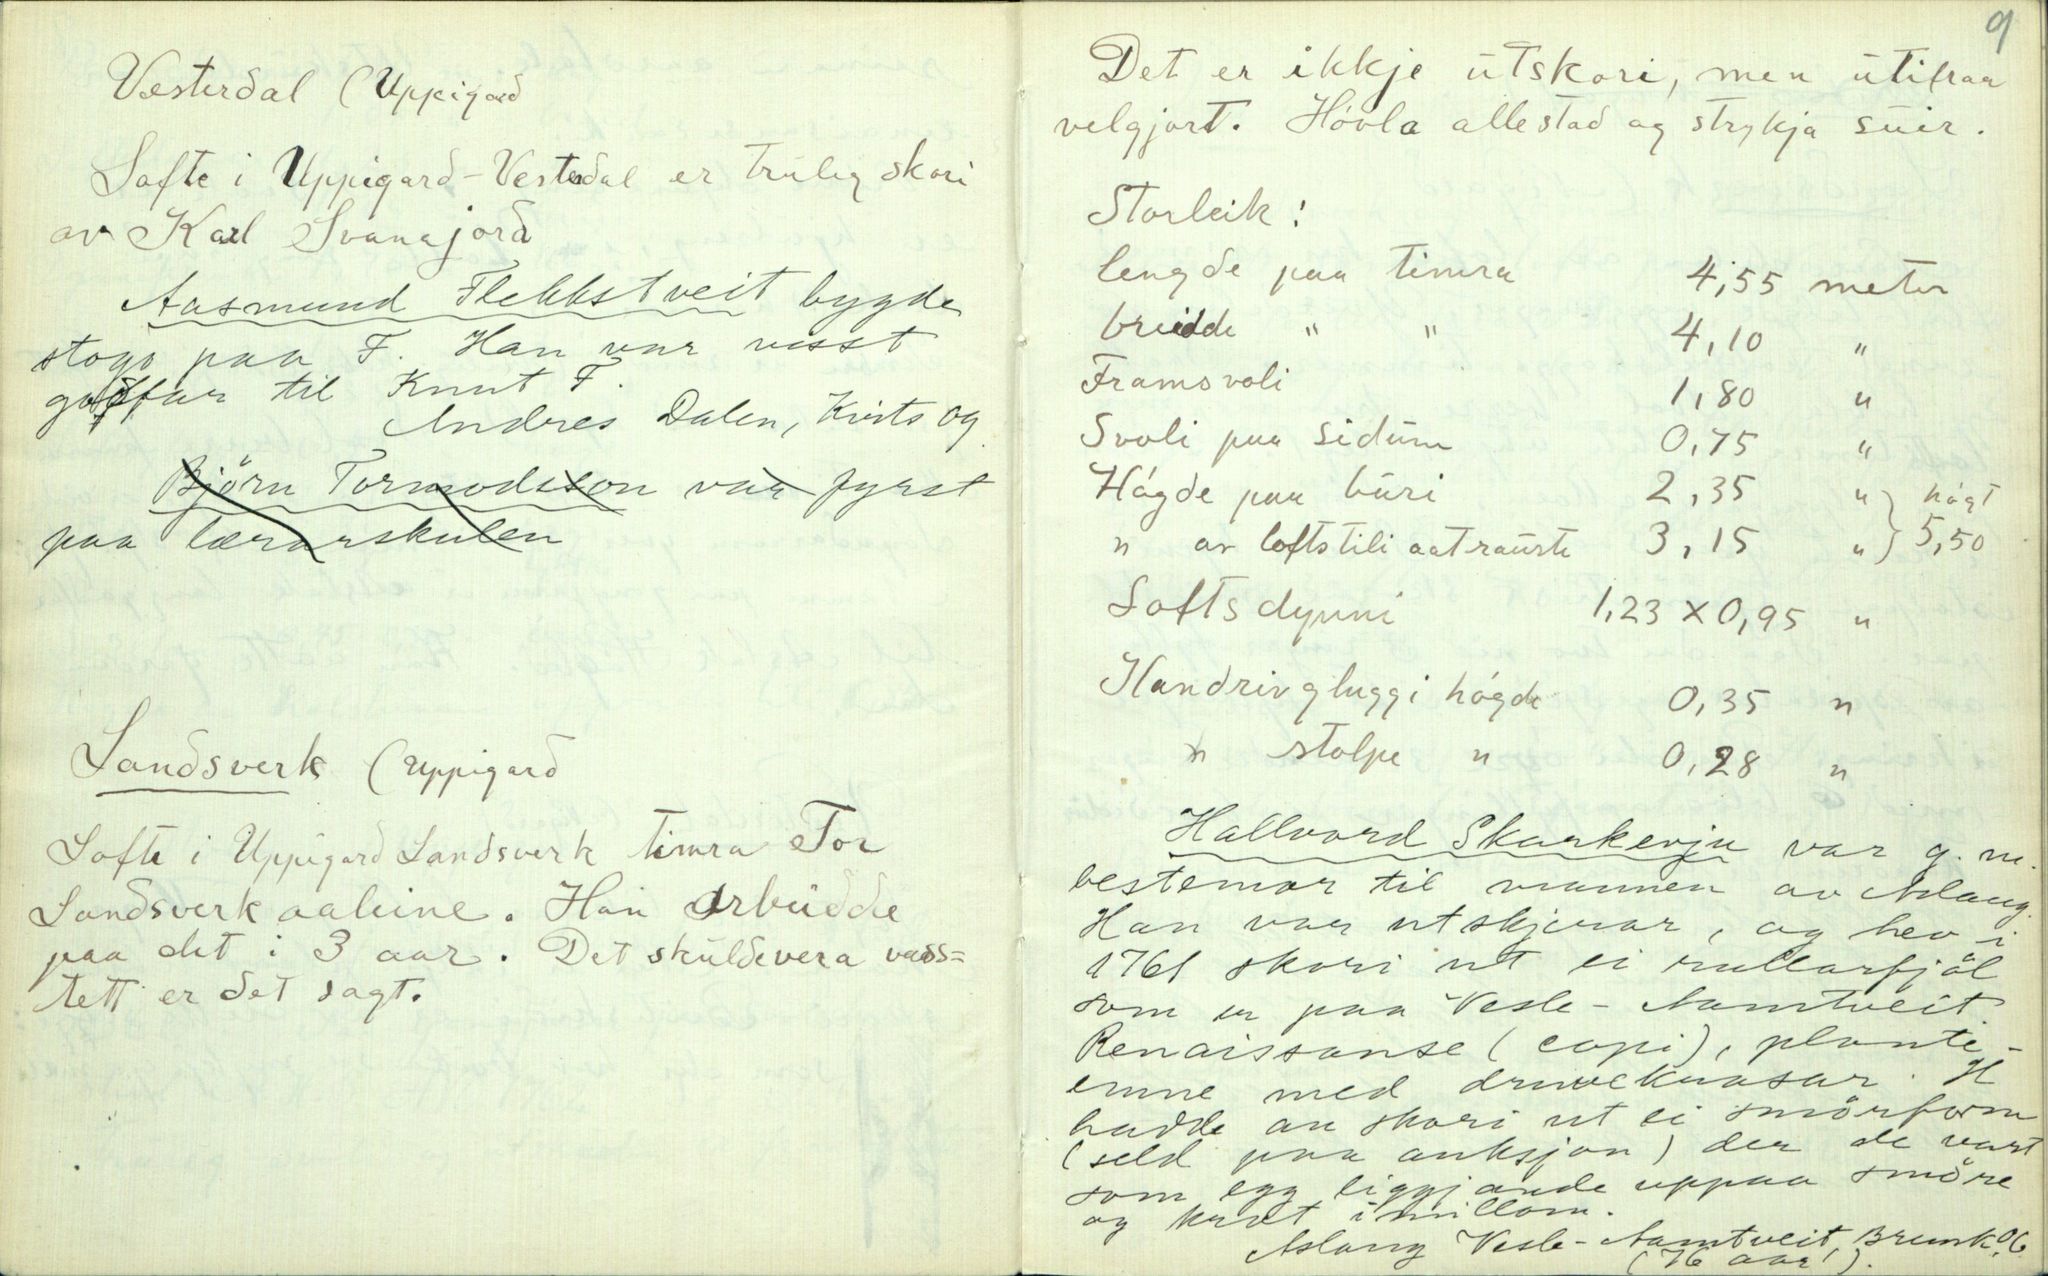 Vesterdal (Uppigard
Lofte i Uppigard-Vesterdal er truleg skori
av Karl Svanajord
Aasmund Flekkstveit bygde
stogo paa F. Han var visst
godfar til Knut F.
Andres Dalen, Kvits og
Björn Tormodsson var fyrst
paa lærarskulen
Landsverk (Uppigard
Lofte i Uppigard Landsverk timra Tor
Landsverk aaleine. Han arbeidde
paa det i 3 aar. Det skulde vera vass=
tett er det sagt.
9
Det er ikkje utskori, men utifraa
velgjort. Hóvla allestad og strykja suir.
Storleik:
lengde paa timra 4,55 meter
breidde " " 4,10 "
Framsvoli 1,80 "
Svoli paa sidum 0,75 "
Hógde paa buri 2,35 " högt
" av loftstili aat rauste 3,15 " 5,50
Loftsdynni 1,23 x 0,95 "
Handrivgluggi hógde 0,35 "
" stolpe " 0,28 "
Hallvord Skarkerju var g. m.
bestemor til mannen av Aslaug.
Han var utskjerar, og hev i
1761 skori ut ei rullarfjöl
som er paa Vesle-Aamtveit
Renaissanse (copi), plante-
emne med druveknasar. H
hadde au skori ut ei smörform
(seld paa auksjon) der de vart
som egg liggjande uppaa smöre
og krot imillom.
Aslaug Vesle-Aamtveit, Brunk. 06
(76 aar).